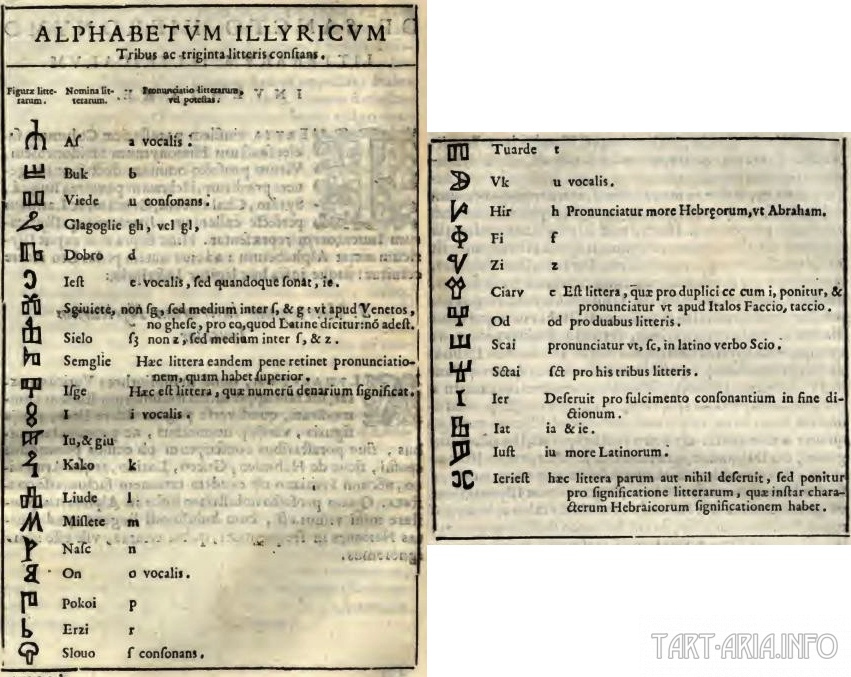 ALPHABETVM ILLYRICVM
Tribus ac triginta litteris conſtans.
Figuræ litte- Nomina lit- Pronunciatio litterarum,
rarum. terarum. vel poteſtas.
Aſ a vocalis.
Buk b
Viede u conſonans.
Glagoglie gh, vel gl,
Dobro d
Ieſt e vocalis, ſed quandoque ſonat, ie.
Sgiuiete, non ſg, ſed medium inter ſ, & g: vt apud Venetos,
no gheſe, pro eo, quod Latine dicitur: nō adeſt.
Sielo ſʒ non z, ſed medium inter ſ, & z.
Semglie Hæc littera eandem pene retinet pronunciatio-
nem, quam habet ſuperior.
Iſge Hæc eſt littera, quæ numerū denarium ſignificat.
I i vocalis.
Iu, & giu
Kako k
Liude l
Miſlete m
Naſc n
On o vocalis.
Pokoi p
Erzi r
Slouo ſ conſonans.
Tuarde t
Vk u vocalis.
Hir h Pronunciatur more Hebręorum, vt Abraham.
Fi f
Zi z
Ciarv c Eſt littera, quæ pro duplici cc cum i, ponitur, &
pronunciatur vt apud Italos Faccio, taccio.
Od od pro duabus litteris.
Scai pronunciatur vt, ſc, in latino verbo Scio.
Sctai ſct pro his tribus litteris.
Ier Deſeruit pro fulcimento conſonantium in fine di-
ctionum.
Iat ia & ie.
Iuſt iu more Latinorum.
Ierieſt hæc littera parum aut nihil deſeruit, ſed ponitur
pro ſignificatione litterarum, quæ inſtar chara-
cterum Hebraicorum ſignificationem habet.
TART-ARIA.INFO